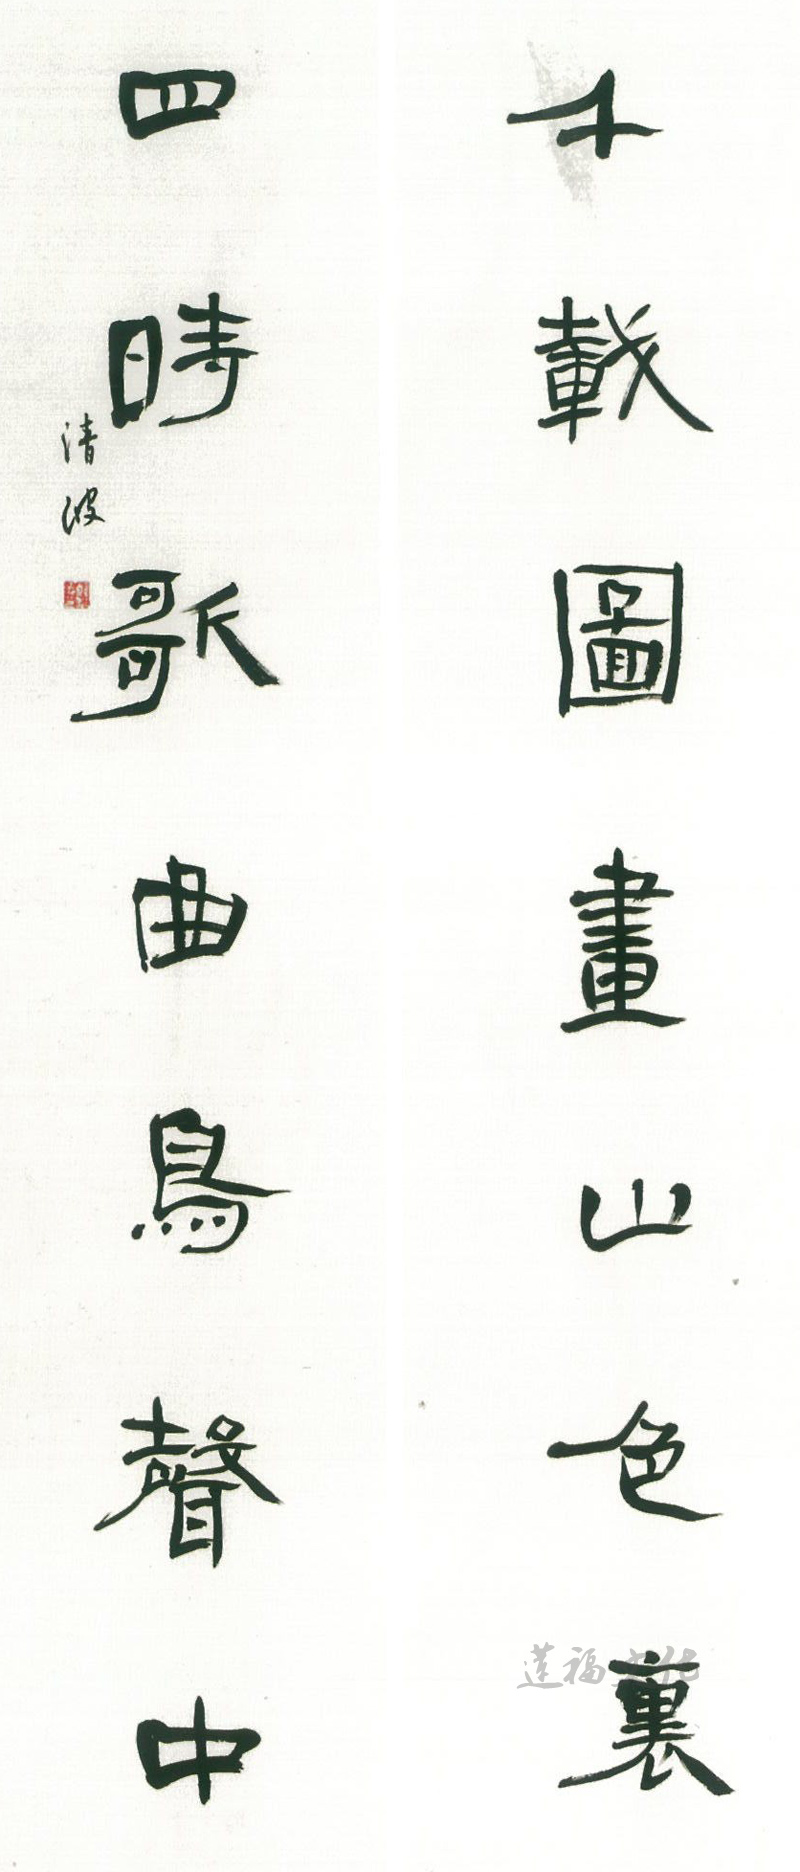 千載圖畫山色裏
四時歌曲鳥聲中
清波